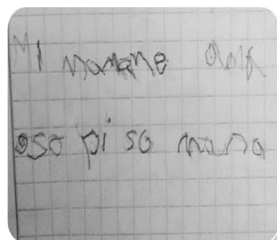 Mi mamame ama
oso piso mano